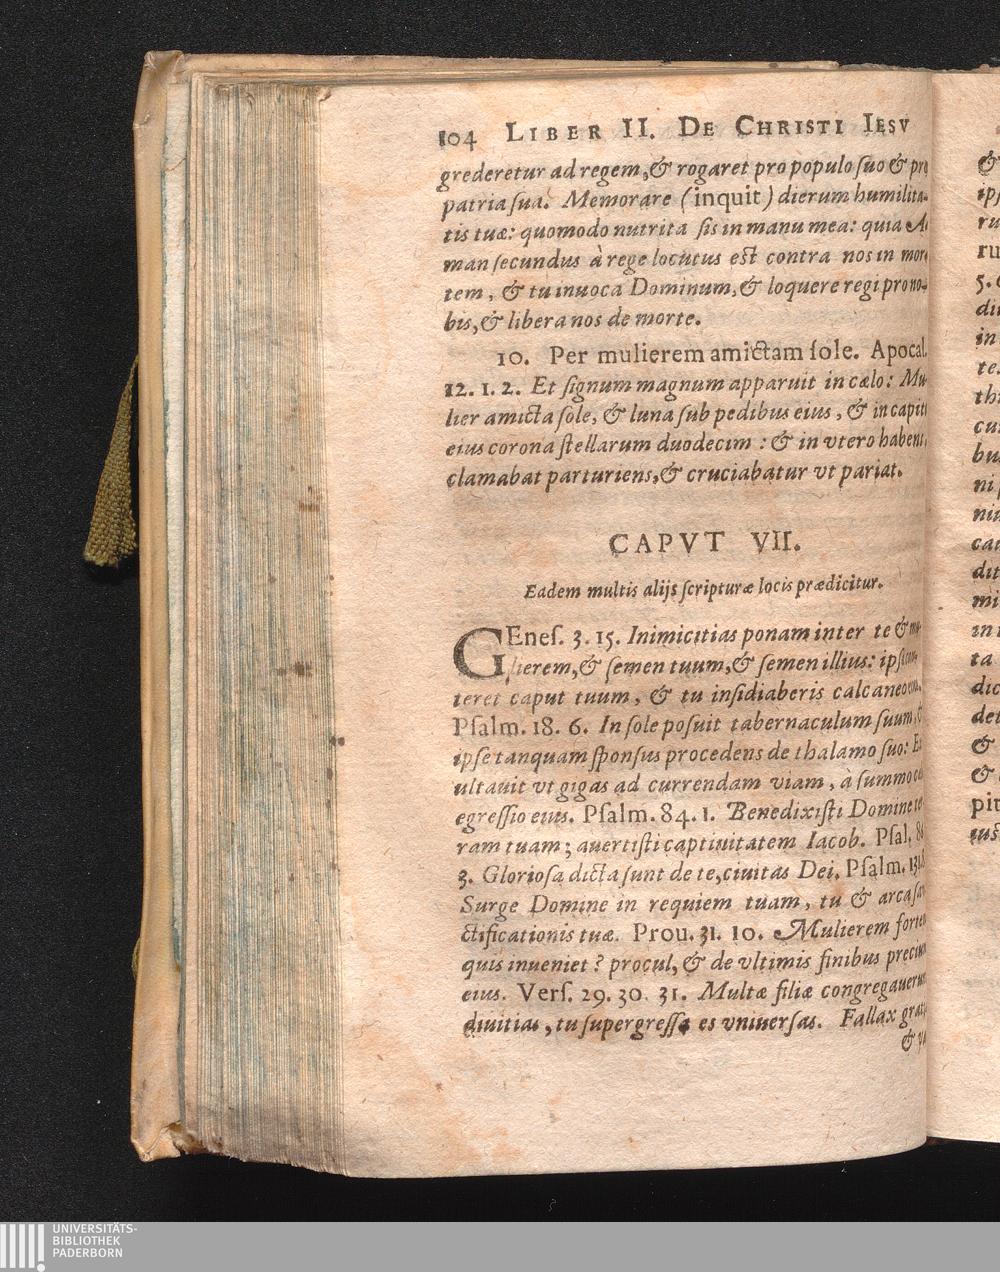 104 LIBER II. DE CHRISTI IESV
grederetur ad regem, & rogaret pro populo ſuo & pro
patria ſua. Memorare (inquit) dierum humilita-
tis tuæ: quomodo nutrita ſis in manu mea: quia A-
man ſecundus à rege locutus est contra nos in mor-
tem, & tu inuoca Dominum, & loquere regi pro no-
bis, & libera nos de morte.
10. Per mulierem amictam ſole. Apocal.
12. 1. 2. Et ſignum magnum apparuit in cælo: Mu-
lier amicta ſole, & luna ſub pedibus eius, & in capite
eius corona ſtellarum duodecim: & in vtero habens,
clamabat parturiens, & cruciabatur vt pariat.
CAPVT VII.
Eadem multis alijs ſcripturæ locis prædicitur.
GEneſ. 3. 15. Inimicitias ponam inter te & mu-
lierem, & ſemen tuum, & ſemen illius: ipſa con-
teret caput tuum, & tu inſidiaberis calcaneo eius.
Pſalm. 18. 6. In ſole poſuit tabernaculum ſuum, &
ipſe tanquam ſponſus procedens de thalamo ſuo: Ex
ultauit vt gigas ad currendam viam, à ſummo cœ
egreſſio eius. Pſalm. 84. 1. Benedixiſti Domine te
ram tuam; auertiſti captiuitatem Iacob. Pſal. 86
3. Glorioſa dicta ſunt de te, ciuitas Dei. Pſalm. 131.8
Surge Domine in requiem tuam, tu & arca ſan
ctificationis tuæ. Prou. 31. 10. Mulierem fortem
quis inueniet? procul, & de vltimis finibus precium
eius. Verſ. 29. 30. 31. Multæ filiæ congregauerunt
diuitias, tu ſupergreſſa es vniuerſas. Fallax gratia
& va
&
ipſ
ru
ru
5.
di
in
te.
th
cu
bu
ni
niu
ca
dit
mi
in
ta
dic
de
&
&
pit
iuſt
UNIVERSITÄTS-
BIBLIOTHEK
PADERBORN